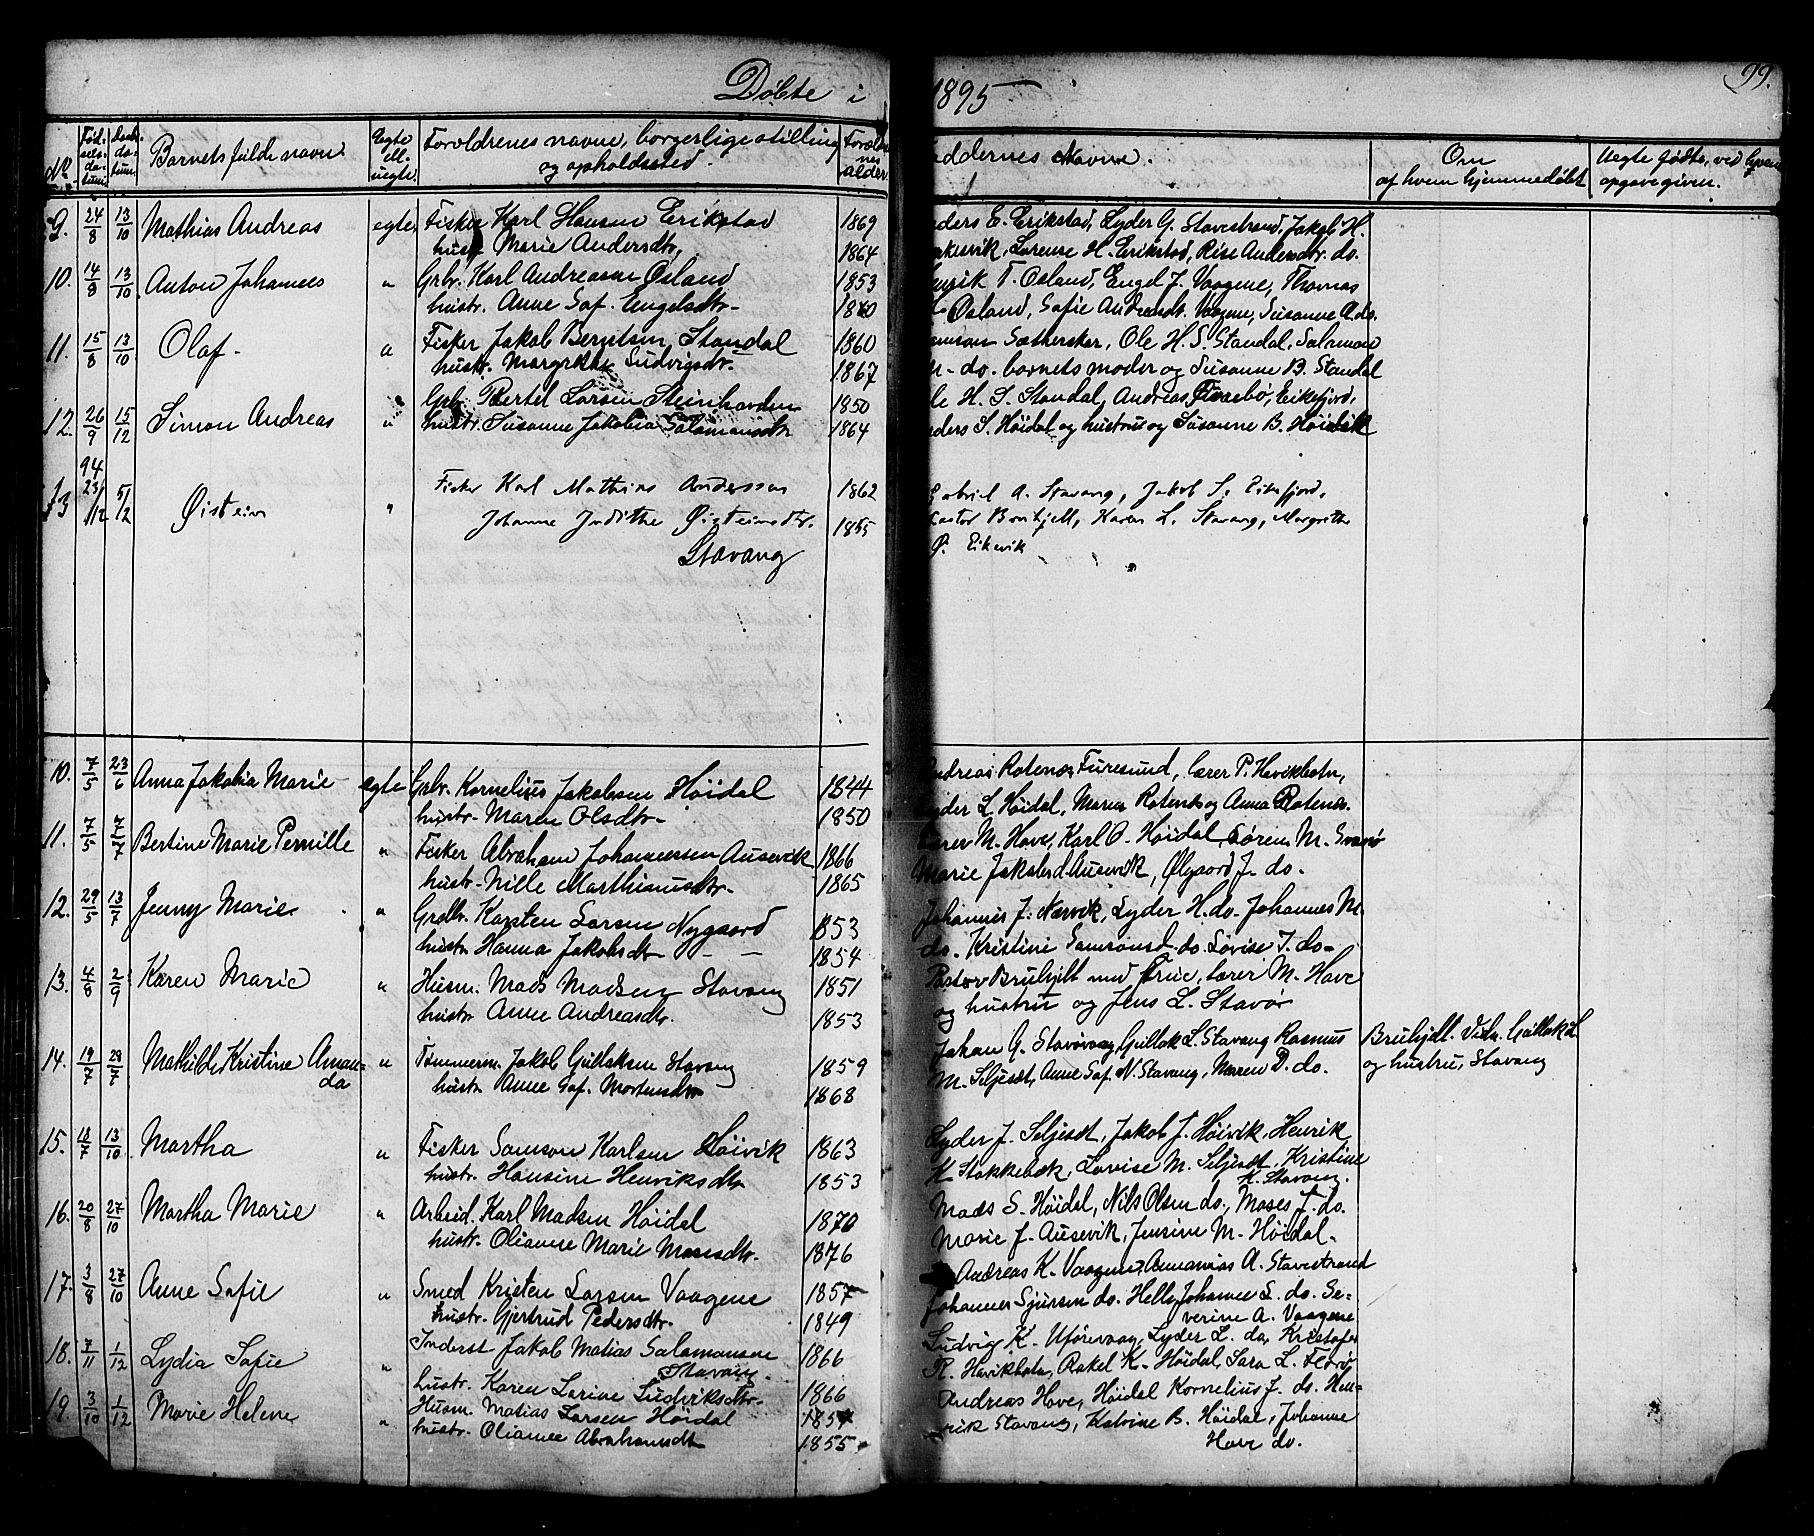 Døbte i 1895
99.
No. Fød-selsda-tum. Daabs-da-tum. Barnets fulde navn. Egte ell. uegte. Forældrenes navne, borgerlige stilling og opholdssted. Foræld-nes alder
addernes Navne. Om af hvem hjemmedøbt Uegte fødte, ved hvem opgave given.
9. 24/8 13/10 Mathias Andreas egte, Fisker Karl Hansen Erikstad 1869 ders E. Erikstad, Lyder G. Stavestrand, Jakob H.
hust. Marie Andersdtr, 1864 Lorense H. Erikstad, Rise Andersdtr. do.
10. 14/9 13/10 Anton Johannes " Grbr. Karl Andreasen Osland 1853 T. Osland, Engel J. Vaagene, Thomas
hustr. Anne Sof. Engelsdtr- Osland, Sofie Andreasdt. Vaagene, Susanne A. do.
11. 15/8 13/10 Olaf- " Fisker Jakob Berntsen Standal 1860 Ole H. S. Standal, Salamon
hustr. Margrethe Ludvigsdtr- 1867 do. barnets moder og Susanne B. Standal
12. 26/9 15/12 Simon Andreas " Grbr. Bertel Larsen Steinhovden 1850 le H. S. Standal, Andreas Eikefjord,
hustr. Susanne Jakobia Salamonsdtr 1864 ders S. Høidal og hustru og Susanne B.
13 94 23/12 5/2 Øistein " Fisker Karl Mathias Andersen 1862 Gabriel A. Stavang, Jakob S. Eikefjord,
Johanne Judithe Øisteinsdtr. 1855 Pastor Bruhjell, Karen L. Stavang, Margrethe
Stavang Ø. Eikevik
10. 7/5 23/6 Anna Jakobia Marie egte Grbr. Kornelius Jakobsen Høidal 1844 Andreas Rotenes, Furesund, lærer P. Havikbotn,
hustr- Maren Olsdtr- 1850 Lyder L. Høidal, Maren Rotenes og Anna Rotenes.
11. 7/5 7/7 Bertine Marie Pernille " Fisker Abraham Johannessen Ausevik 1866 Lærer M. Have, Karl O. Høidal, Søren M. Svanø
hustr- Nille Marthinusdtr- 1865 Marie Jakobsd. Ausevik, Olgaard J. do.
12. 29/5 13/7 Jenny Marie " Grdbr. Karsten Larsen Nygaard 1853 Johannes J. Nærvik, Lyder H. do. Johannes M.
hustr. Hanna Jakobsdtr - - 1854 do. Kristine Samsonsd. do. Lovise J. do-
13. 4/8 2/9 Karen Marie " Husm. Mads Madsen Stavang 1851 Pastor Bruhjell med Frue, lærer M. Have
hustr. Anne Andreasdtr. 1853 og hustru og Jens L. Stavør
14. 19/7 28/7 Mathilde Kristine Aman- " Tømmerm. Jakob Gullaksen Stavang 1859 Johan G. Gullak L. Stavang Rasmus Bruhjell. Vidn. Gullak L.
da hustr. Anne Sof. Mortensdtr 1868 M. Seljeset, Anne Sof. N. Stavang, Maren P. do. og hustru, Stavang
15. 18/7 13/10 Martha " Fisker Samson Karlsen Høivik 1863 Lyder J. Seljeset, Jakob J. Høivik, Henrik
hustr. Hansine Henriksdtr 1853 K Stokkebæk, Lovise M. Seljeset. Kristine
K. Stavang.
16. 20/8 27/10 Martha Marie " Arbeid. Karl Madsen Høidal 1870 Mads S. Høidal, Nils Olsen do., Moses J. do.
hustr. Olianne Marie Mosesdtr. 1876 Marie J. Ausevik, Jensine M. Høidal.
17. 3/8 27/10 Anne Sofie " Smed Kristen Larsen Vaagene 1857 Andreas K. Vaagene, Annanias A. Stavestrand
hustr. Gjertrud Pedersdtr. 1849 Johannes Sjursen do. Helle Johanne L. do. Se-
verine A. Vaagene
18. 7/11 1/12 Lydia Sofie " Inderst Jakob Matias Salamonsen 1866 Ludvig K. Uførevaag, Lyder L. do, Kristofer
Stavang. R. Havikbotn, Rakel K. Høidal, Sara L. Florø
hustr. Karen Larine Ludviksdtr- 1866
19. 3/10 1/12 Marie Helene " Husm. Matias Larsen Høidal 1857 Andreas Have, Høidal Kornelius J. do. Hen-
hustr. Olianne Abrahamsdtr 1855 rik Stavang, Katrine B. Høidal, Johanne
Have do.